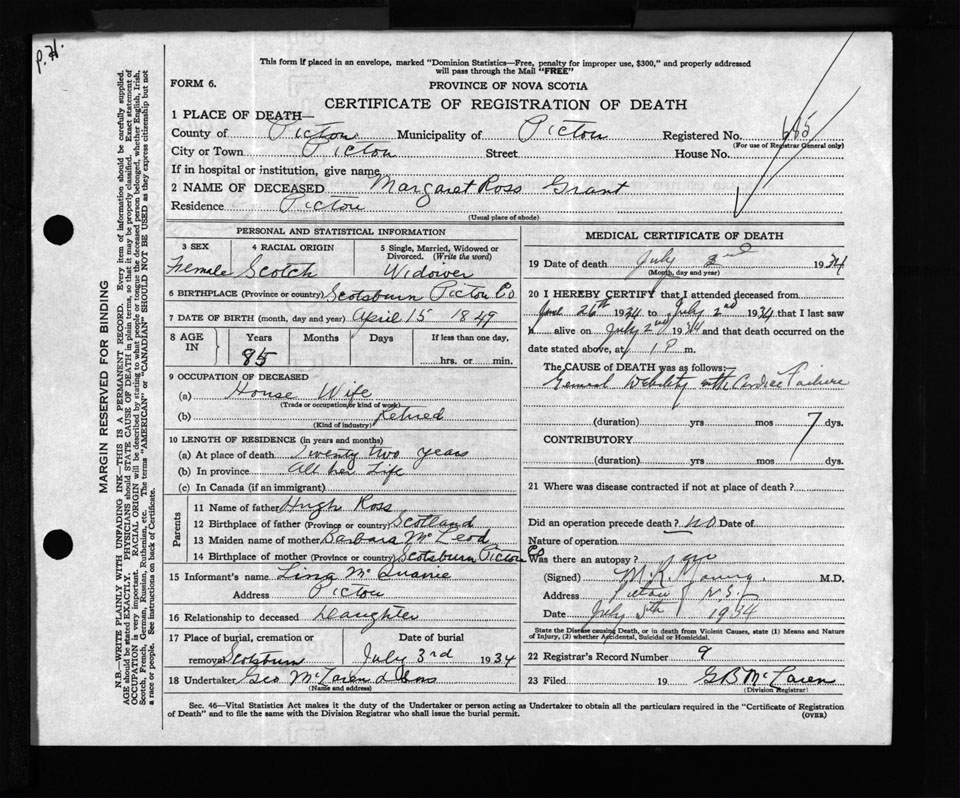 P.H.
This form if placed in an envelope, marked "Dominion Statistics—Free, penalty for improper use, $300," and properly addressed
will pass through the Mail "FREE"
FORM 6.
PROVINCE OF NOVA SCOTIA
CERTIFICATE OF REGISTRATION OF DEATH
1 PLACE OF DEATH—
County of Pictou Municipality of Pictou Registered No. 685
(For use of Registrar General only)
City or Town Pictou Street House No.
If in hospital or institution, give name
2 NAME OF DECEASED Margaret Ross Grant
Residence Pictou
(Usual place of abode)
PERSONAL AND STATISTICAL INFORMATION
3 SEX 4 RACIAL ORIGIN 5 Single, Married, Widowed or Divorced. (Write the word)
Female Scotch Widower
6 BIRTHPLACE (Province or country) Scotsburn Pictou Co
7 DATE OF BIRTH (month, day and year) April 15 1849
8 AGE IN Years Months Days If less than one day,
85 hrs. or min.
9 OCCUPATION OF DECEASED
(a) House Wife
(Trade or occupation or kind of work)
(b) Retired
(Kind of industry)
10 LENGTH OF RESIDENCE (in years and months)
(a) At place of death Twenty two years
(b) In province All her Life
(c) In Canada (if an immigrant)
Parents
11 Name of father Hugh Ross
12 Birthplace of father (Province or country) Scotland
13 Maiden name of mother Barbara McLeod
14 Birthplace of mother (Province or country) Scotsburn Pictou Co
15 Informant's name Mc
Address Pictou
16 Relationship to deceased Daughter
17 Place of burial, cremation or removal Scotsburn Date of burial July 3rd 1934
18 Undertaker Geo McLaren & Sons
(Name and address)
MEDICAL CERTIFICATE OF DEATH
19 Date of death July 2nd 1934
(Month, day and year)
20 I HEREBY CERTIFY that I attended deceased from
June 26th 1934 to July 2nd 1934 that I last saw
h alive on July 2nd 1934 and that death occurred on the
date stated above, at 1 P m.
The CAUSE OF DEATH was as follows:
General Debility with Cardiac Failure
(duration) yrs mos 7 dys.
CONTRIBUTORY
(duration) yrs mos dys.
21 Where was disease contracted if not at place of death?
Did an operation precede death? No Date of
Nature of operation
Was there an autopsy?
(Signed) M.R. Young M.D.
Address Pictou N.S.
Date July 5th 1934
State the Disease causing Death, or in death from Violent Causes, state (1) Means and Nature
of Injury, (2) whether Accidental, Suicidal or Homicidal.
22 Registrar's Record Number 9
23 Filed 19 GB McLaren
(Division Registrar)
Sec. 46—Vital Statistics Act makes it the duty of the Undertaker or person acting as Undertaker to obtain all the particulars required in the "Certificate of Registration
of Death" and to file the same with the Division Registrar who shall issue the burial permit.
(OVER)
MARGIN RESERVED FOR BINDING
N.B.—WRITE PLAINLY WITH UNFADING INK—THIS IS A PERMANENT RECORD. Every item of information should be carefully supplied.
AGE should be stated EXACTLY. PHYSICIANS should STATE CAUSE OF DEATH in plain terms, so that it may be properly classified. Exact statement of
OCCUPATION is very important. RACIAL ORIGIN will be described by stating to what people or tongue the deceased person belonged, whether English, Irish,
Scotch, French, German, Russian, Ruthenian, etc. The terms "AMERICAN" or "CANADIAN" SHOULD NOT BE USED as they express citizenship but not
a race or people. See instructions on back of Certificate.